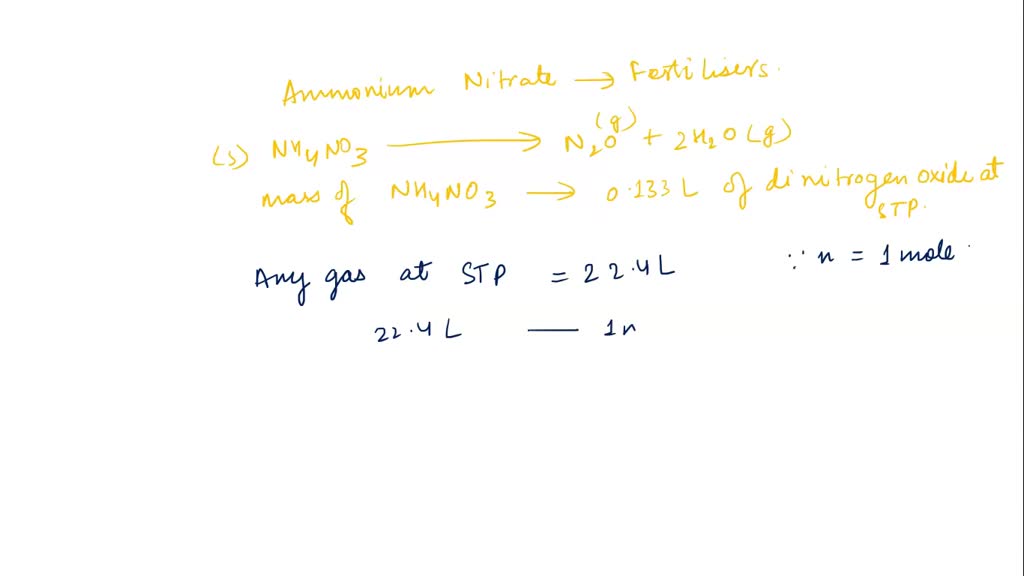 Ammonium Nitrate → Fertilisers.
(s) NH4NO3 → N2O (g) + 2H2O (g)
mass of NH4NO3 → 0.133 L of dinitrogen oxide at STP.
Any gas at STP = 22.4 L ∵ n = 1 mole.
22.4 L — 1n